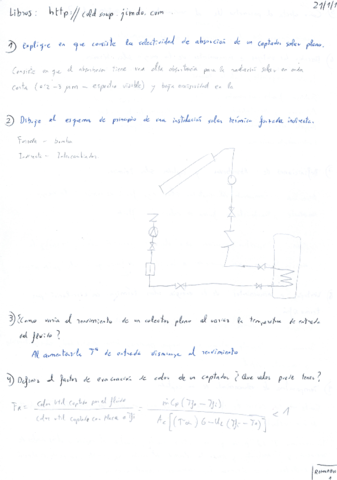 Libros: http://coldsup.jimdo.com
21/1/1
1) Explique en que consiste la selectividad de absorción de un captador solar plano.
Consiste en que el absorbedor tiene una alta absortancia para la radiación solar en onda
corta (0.2 - 3 μm - espectro visible) y baja emisividad en la
2) Dibuje el esquema de principio de una instalación solar térmica forzada indirecta.
Forzada - bomba
Indirecta - Intercambiador
3) ¿Como varia el rendimiento de un colector plano al variar la temperatura de entrada
del fluido?
Al aumentar la Tª de entrada disminuye el rendimiento
4) Defina el factor de evacuación de calor de un captador? ¿Que valor puede tener?
calor util captado por el fluido
calor util captado con placa a
< 1